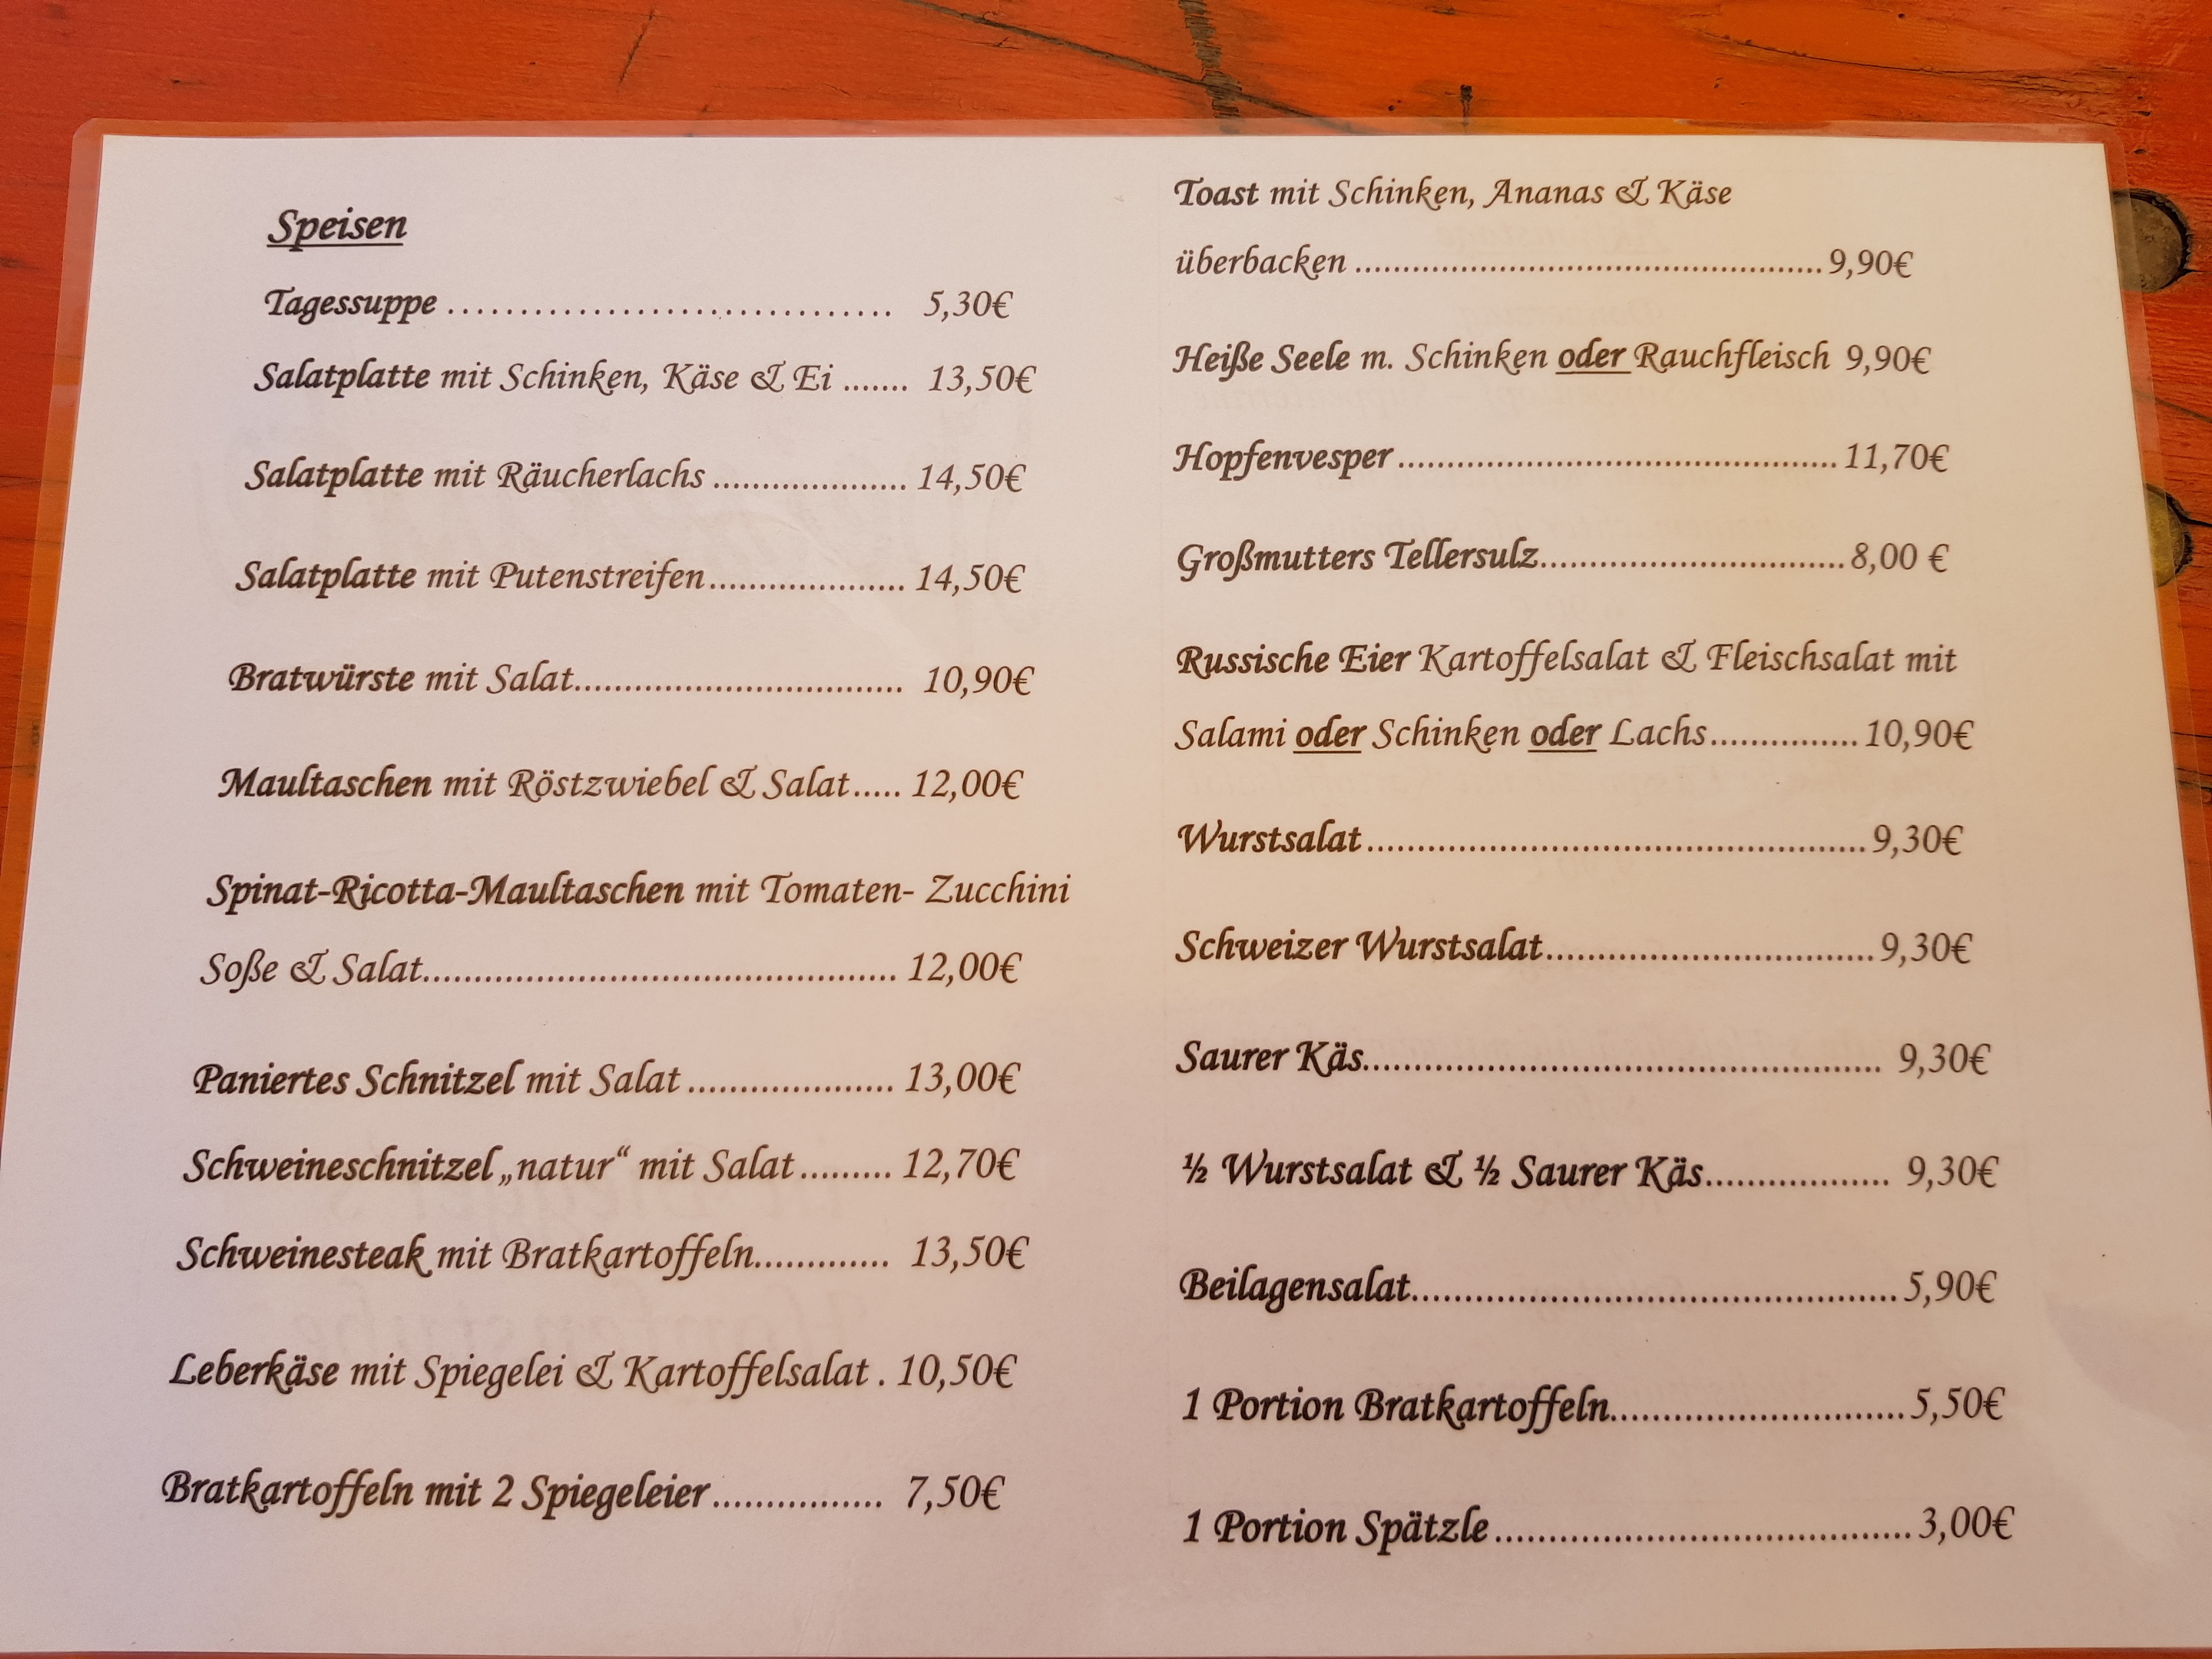 Speisen
Tagessuppe ............................... 5,30€
Salatplatte mit Schinken, Käse & Ei ....... 13,50€
Salatplatte mit Räucherlachs .................... 14,50€
Salatplatte mit Putenstreifen.................... 14,50€
Bratwürste mit Salat.................................. 10,90€
Maultaschen mit Röstzwiebel & Salat..... 12,00€
Spinat-Ricotta-Maultaschen mit Tomaten- Zucchini
Soße & Salat................................................ 12,00€
Paniertes Schnitzel mit Salat ..................... 13,00€
Schweineschnitzel „natur“ mit Salat ......... 12,70€
Schweinesteak mit Bratkartoffeln............. 13,50€
Leberkäse mit Spiegelei & Kartoffelsalat . 10,50€
Bratkartoffeln mit 2 Spiegeleier................ 7,50€
Toast mit Schinken, Ananas & Käse
überbacken ................................................ 9,90€
Heiße Seele m. Schinken oder Rauchfleisch 9,90€
Hopfenvesper ............................................. 11,70€
Großmutters Tellersulz............................... 8,00 €
Russische Eier Kartoffelsalat & Fleischsalat mit
Salami oder Schinken oder Lachs............... 10,90€
Wurstsalat .................................................. 9,30€
Schweizer Wurstsalat................................. 9,30€
Saurer Käs.................................................. 9,30€
½ Wurstsalat & ½ Saurer Käs.................. 9,30€
Beilagensalat.............................................. 5,90€
1 Portion Bratkartoffeln............................ 5,50€
1 Portion Spätzle ........................................ 3,00€